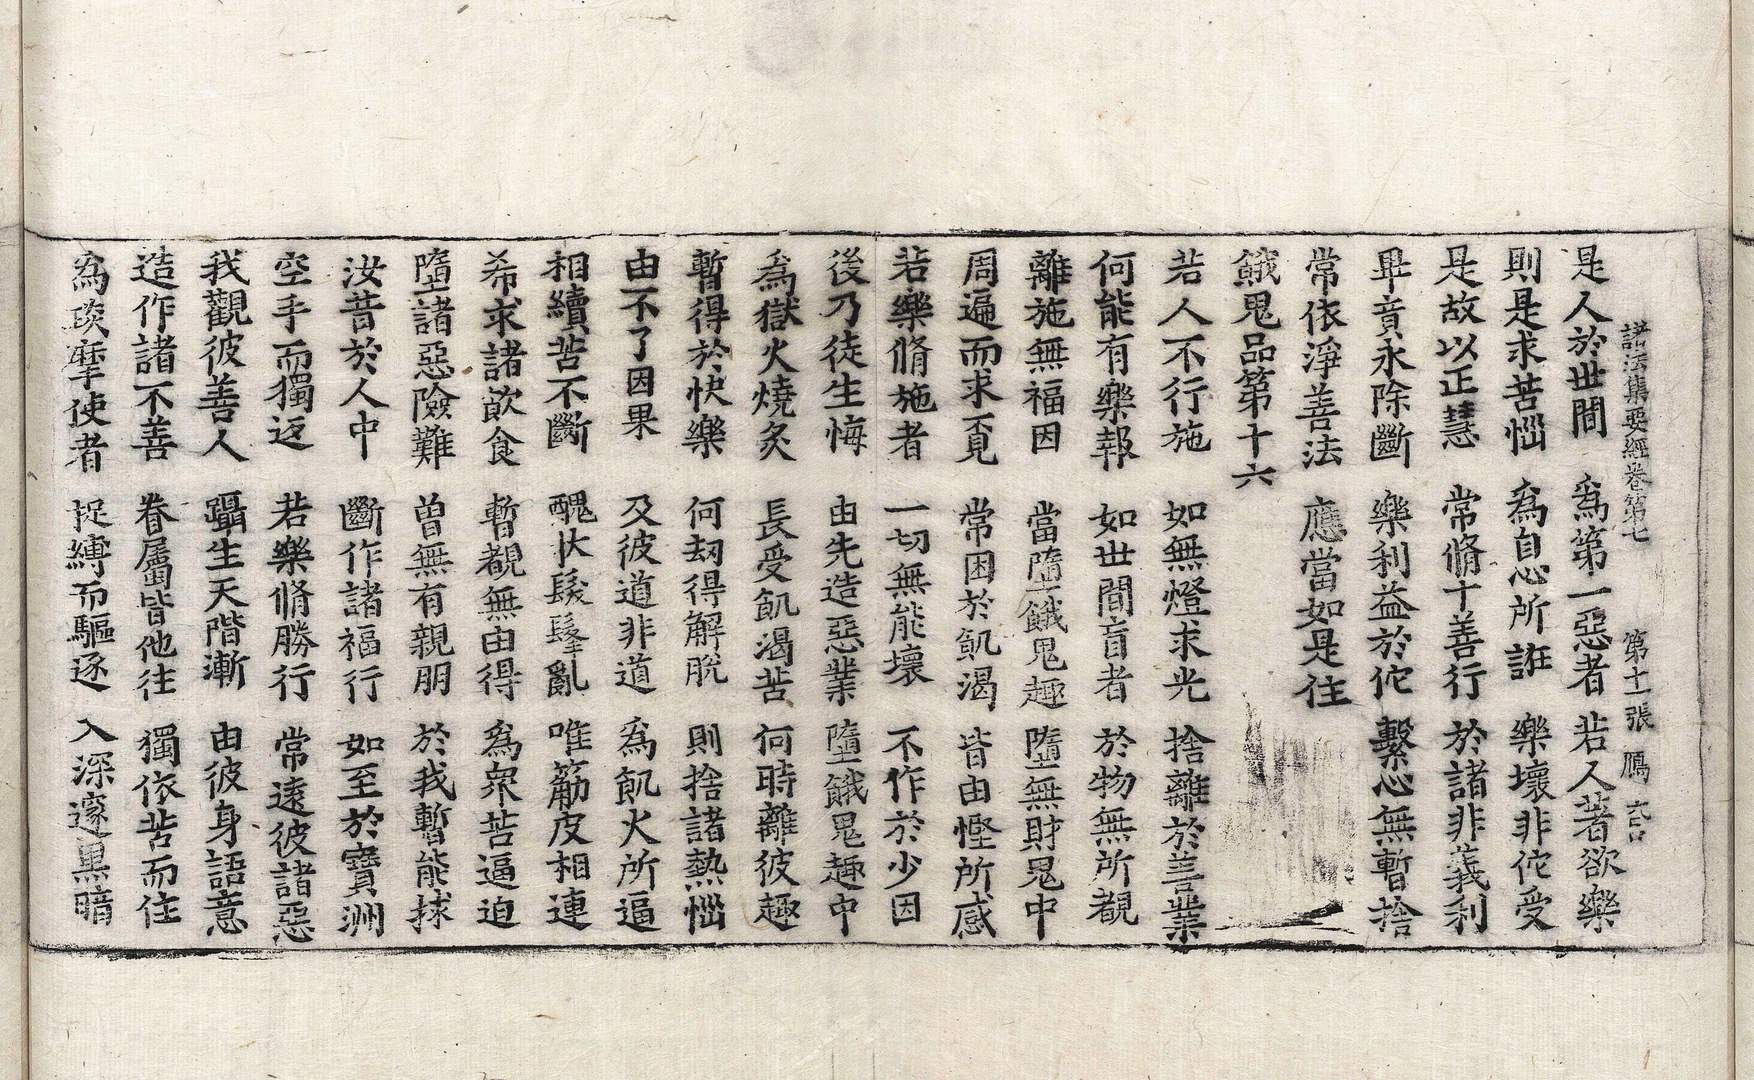 諸法集要經卷第七 第十一張 鴈
是人於世間 爲第一惡者 若人著欲樂
則是求苦惱 爲自心所誑 樂壞非佗受
是故以正慧 常脩十善行 於諸非義利
畢竟永除斷 樂利益於佗 繫心無暫捨
常依淨善法 應當如是住
餓鬼品第十六
若人不行施 如無燈求光 捨離於善業
何能有樂報 如世間盲者 於物無所覩
離施無福因 當墮餓鬼趣 墮無財鬼中
周遍而求覓 常困於飢渴 皆由慳所感
若樂脩施者 一切無能壞 不作於少因
後乃徒生悔 由先造惡業 墮餓鬼趣中
爲獄火燒炙 長受飢渴苦 何時離彼趣
暫得於快樂 何劫得解脫 則捨諸熱惱
由不了因果 及彼道非道 爲飢火所逼
相續苦不斷 醜狀髮髼亂 唯筋皮相連
希求諸飲食 暫覩無由得 爲衆苦逼迫
墮諸惡險難 曾無有親朋 於我暫能捄
汝昔於人中 斷作諸福行 如至於寶洲
空手而獨返 若樂脩勝行 常遠彼諸惡
我觀彼善人 躡生天階漸 由彼身語意
造作諸不善 眷屬皆他往 獨依苦而住
爲琰摩使者 捉縛而驅逐 入深邃黑暗